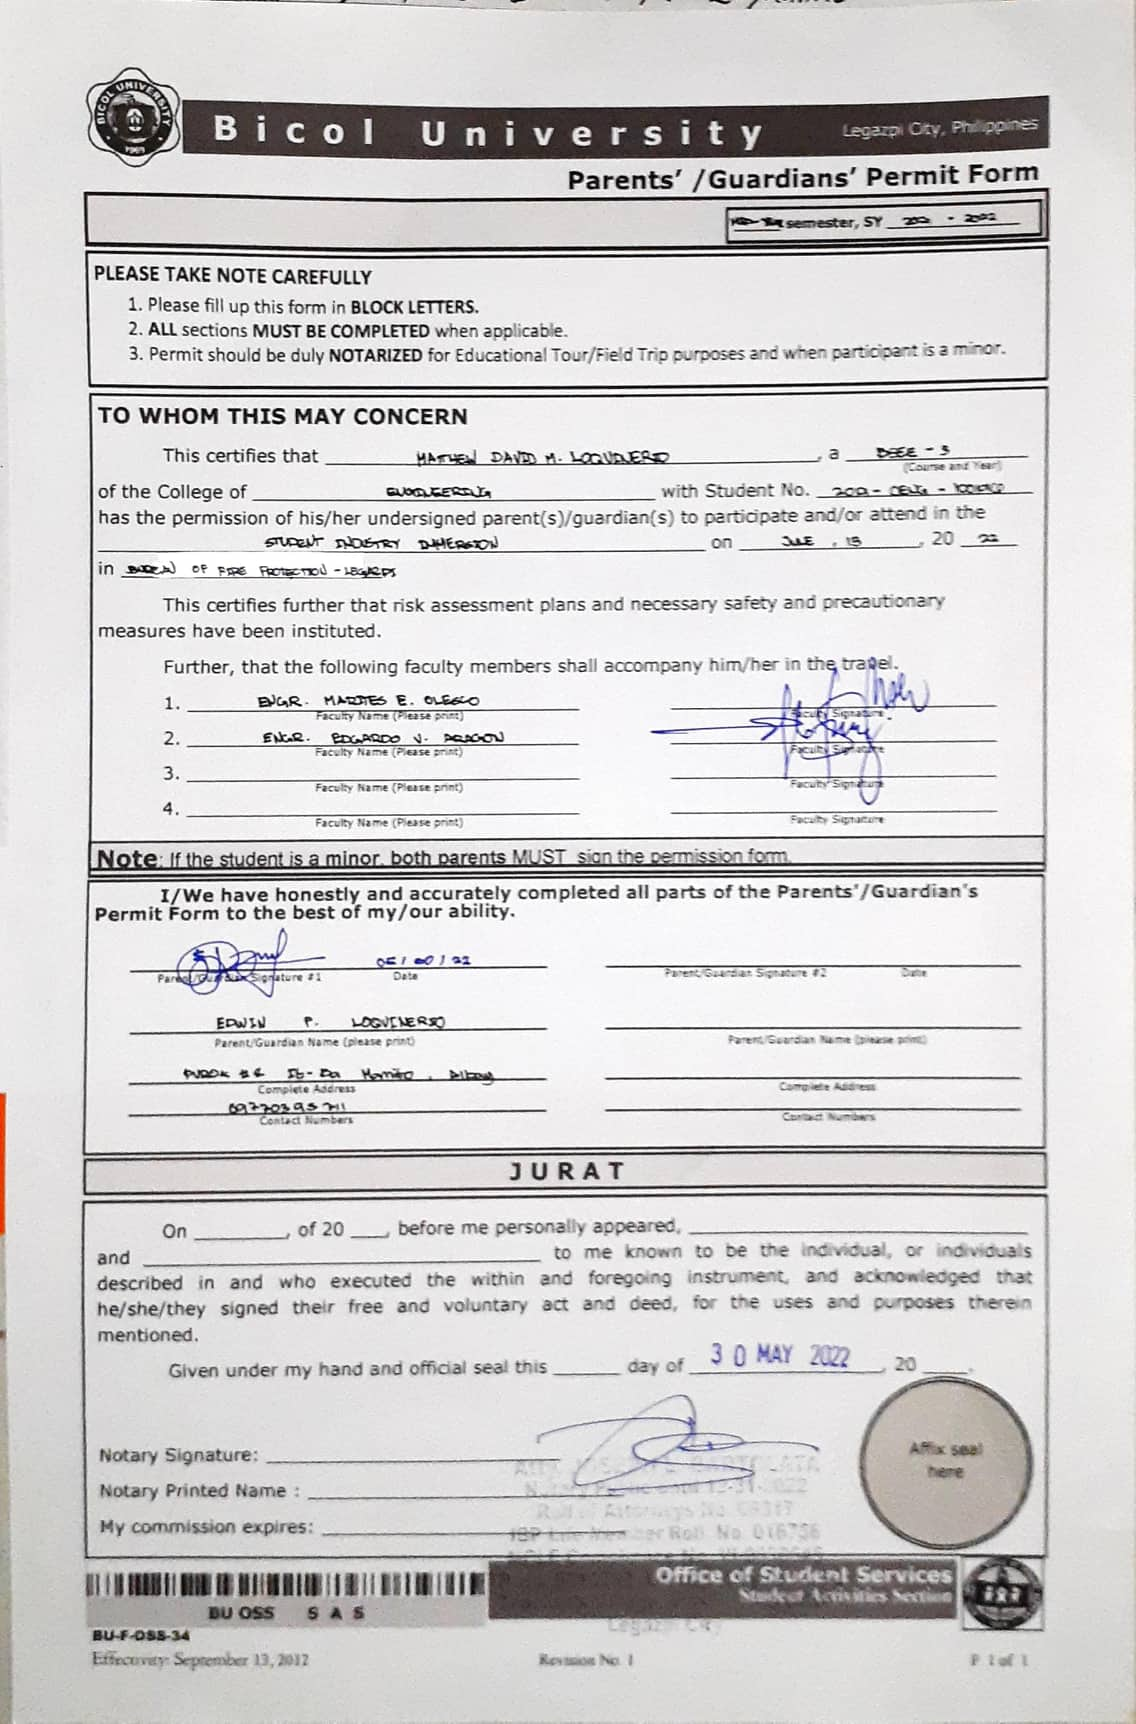 BICOL UNIVERSITY
1969
Bicol University Legazpi City, Philippines
Parents' /Guardians' Permit Form
semester, SY - 2022
PLEASE TAKE NOTE CAREFULLY
1. Please fill up this form in BLOCK LETTERS.
2. ALL sections MUST BE COMPLETED when applicable.
3. Permit should be duly NOTARIZED for Educational Tour/Field Trip purposes and when participant is a minor.
TO WHOM THIS MAY CONCERN
This certifies that MATHEW DAVID M. , a - 3
(Course and Year)
of the College of ENGINEERING with Student No.
has the permission of his/her undersigned parent(s)/guardian(s) to participate and/or attend in the
STUDENT INDUSTRY IMMERSION on , 20 22
in BUREAU OF FIRE PROTECTION -
This certifies further that risk assessment plans and necessary safety and precautionary
measures have been instituted.
Further, that the following faculty members shall accompany him/her in the travel.
1. ENGR. E.
Faculty Name (Please print) Faculty Signature
2. ENGR. EDGARDO V. ARAGON
Faculty Name (Please print) Faculty Signature
3.
Faculty Name (Please print) Faculty Signature
4.
Faculty Name (Please print) Faculty Signature
Note: If the student is a minor, both parents MUST sign the permission form.
I/We have honestly and accurately completed all parts of the Parents'/Guardian's
Permit Form to the best of my/our ability.
Parent/Guardian Signature #1 Date Parent/Guardian Signature #2 Date
EDWIN P.
Parent/Guardian Name (please print) Parent/Guardian Name (please print)
PUROK # Albay
Complete Address Complete Address
Contact Numbers Contact Numbers
JURAT
On , of 20 , before me personally appeared,
and to me known to be the individual, or individuals
described in and who executed the within and foregoing instrument, and acknowledged that
he/she/they signed their free and voluntary act and deed, for the uses and purposes therein
mentioned.
Given under my hand and official seal this day of 30 MAY 2022, 20 .
Notary Signature:
Notary Printed Name :
My commission expires:
Roll of Attorneys No.
IBP Life Member Roll No. 016756
Affix seal
here
Office of Student Services
Student Activities Section
BU OSS S A S
Legazpi City
BU-F-OSS-34
Effectivity: September 13, 2012 Revision No. 1 P 1 of 1